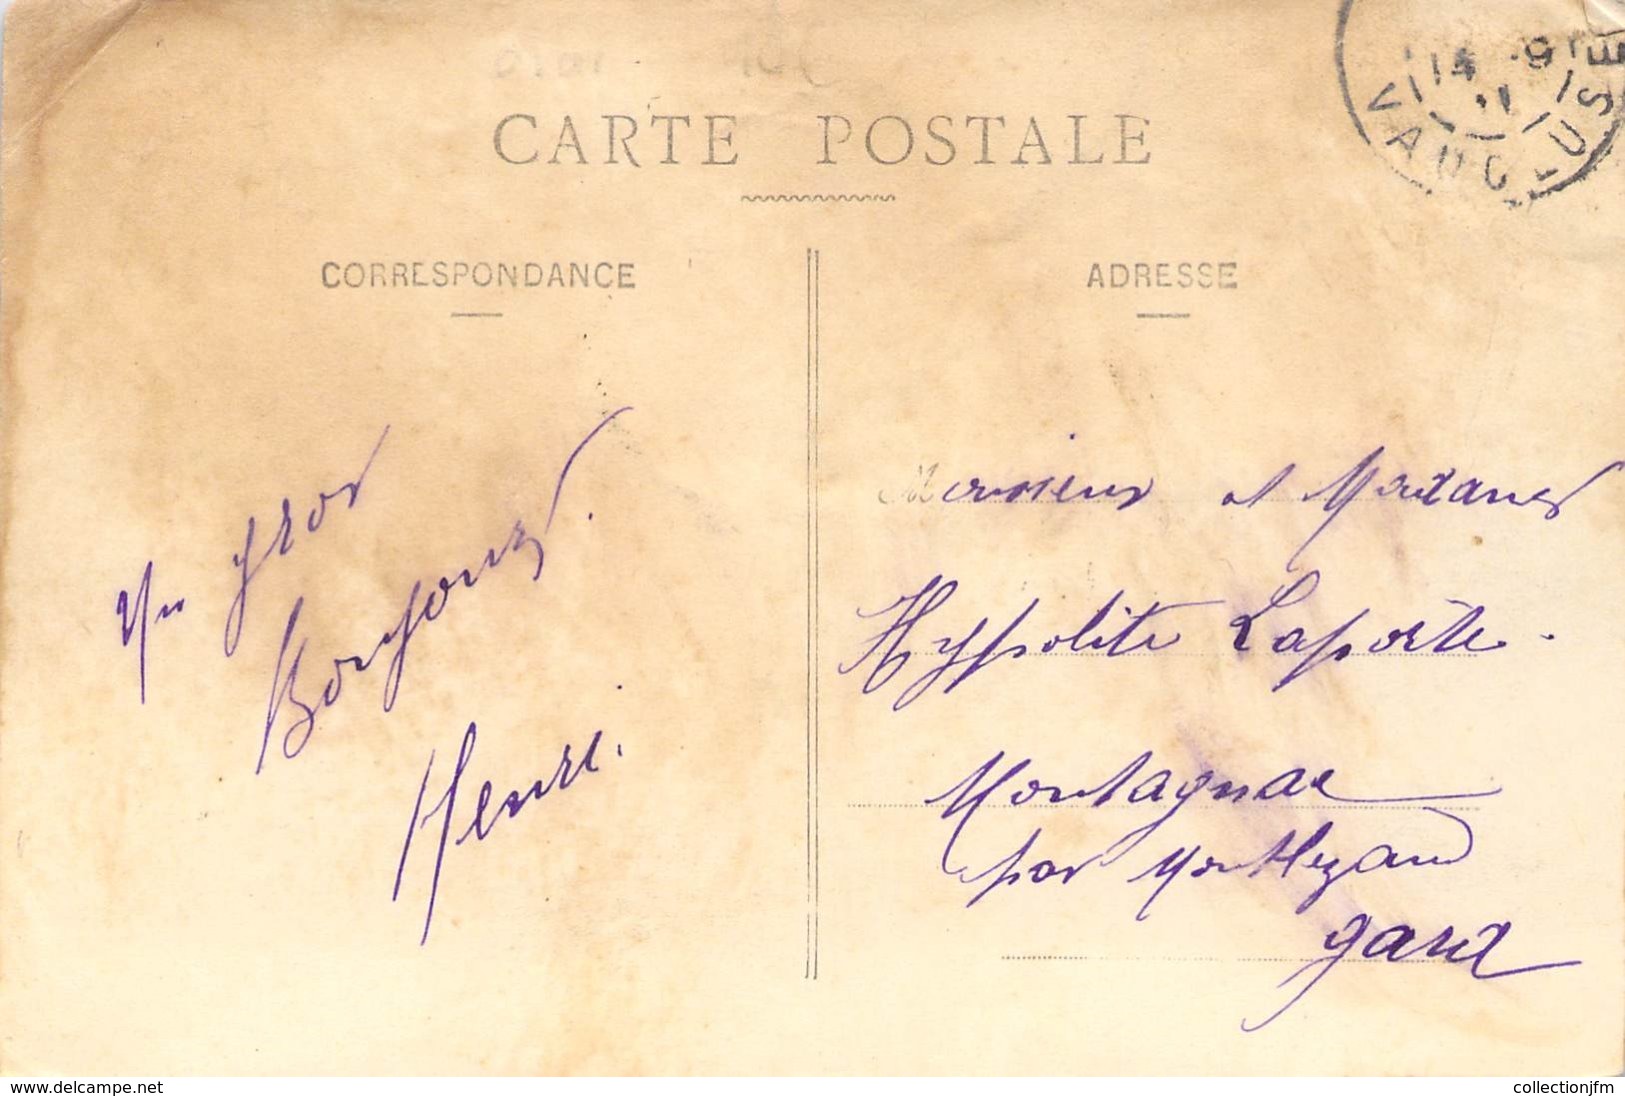 CARTE POSTALE
CORRESPONDANCE
ADRESSE
VAUCLUSE
14 9
11
Un gros
Bonjour.
Henri.
Monsieur et Madame
Hyppolite Laporte.
Montagnac
par Montlezan
gard
www.delcampe.net
collectionjfm